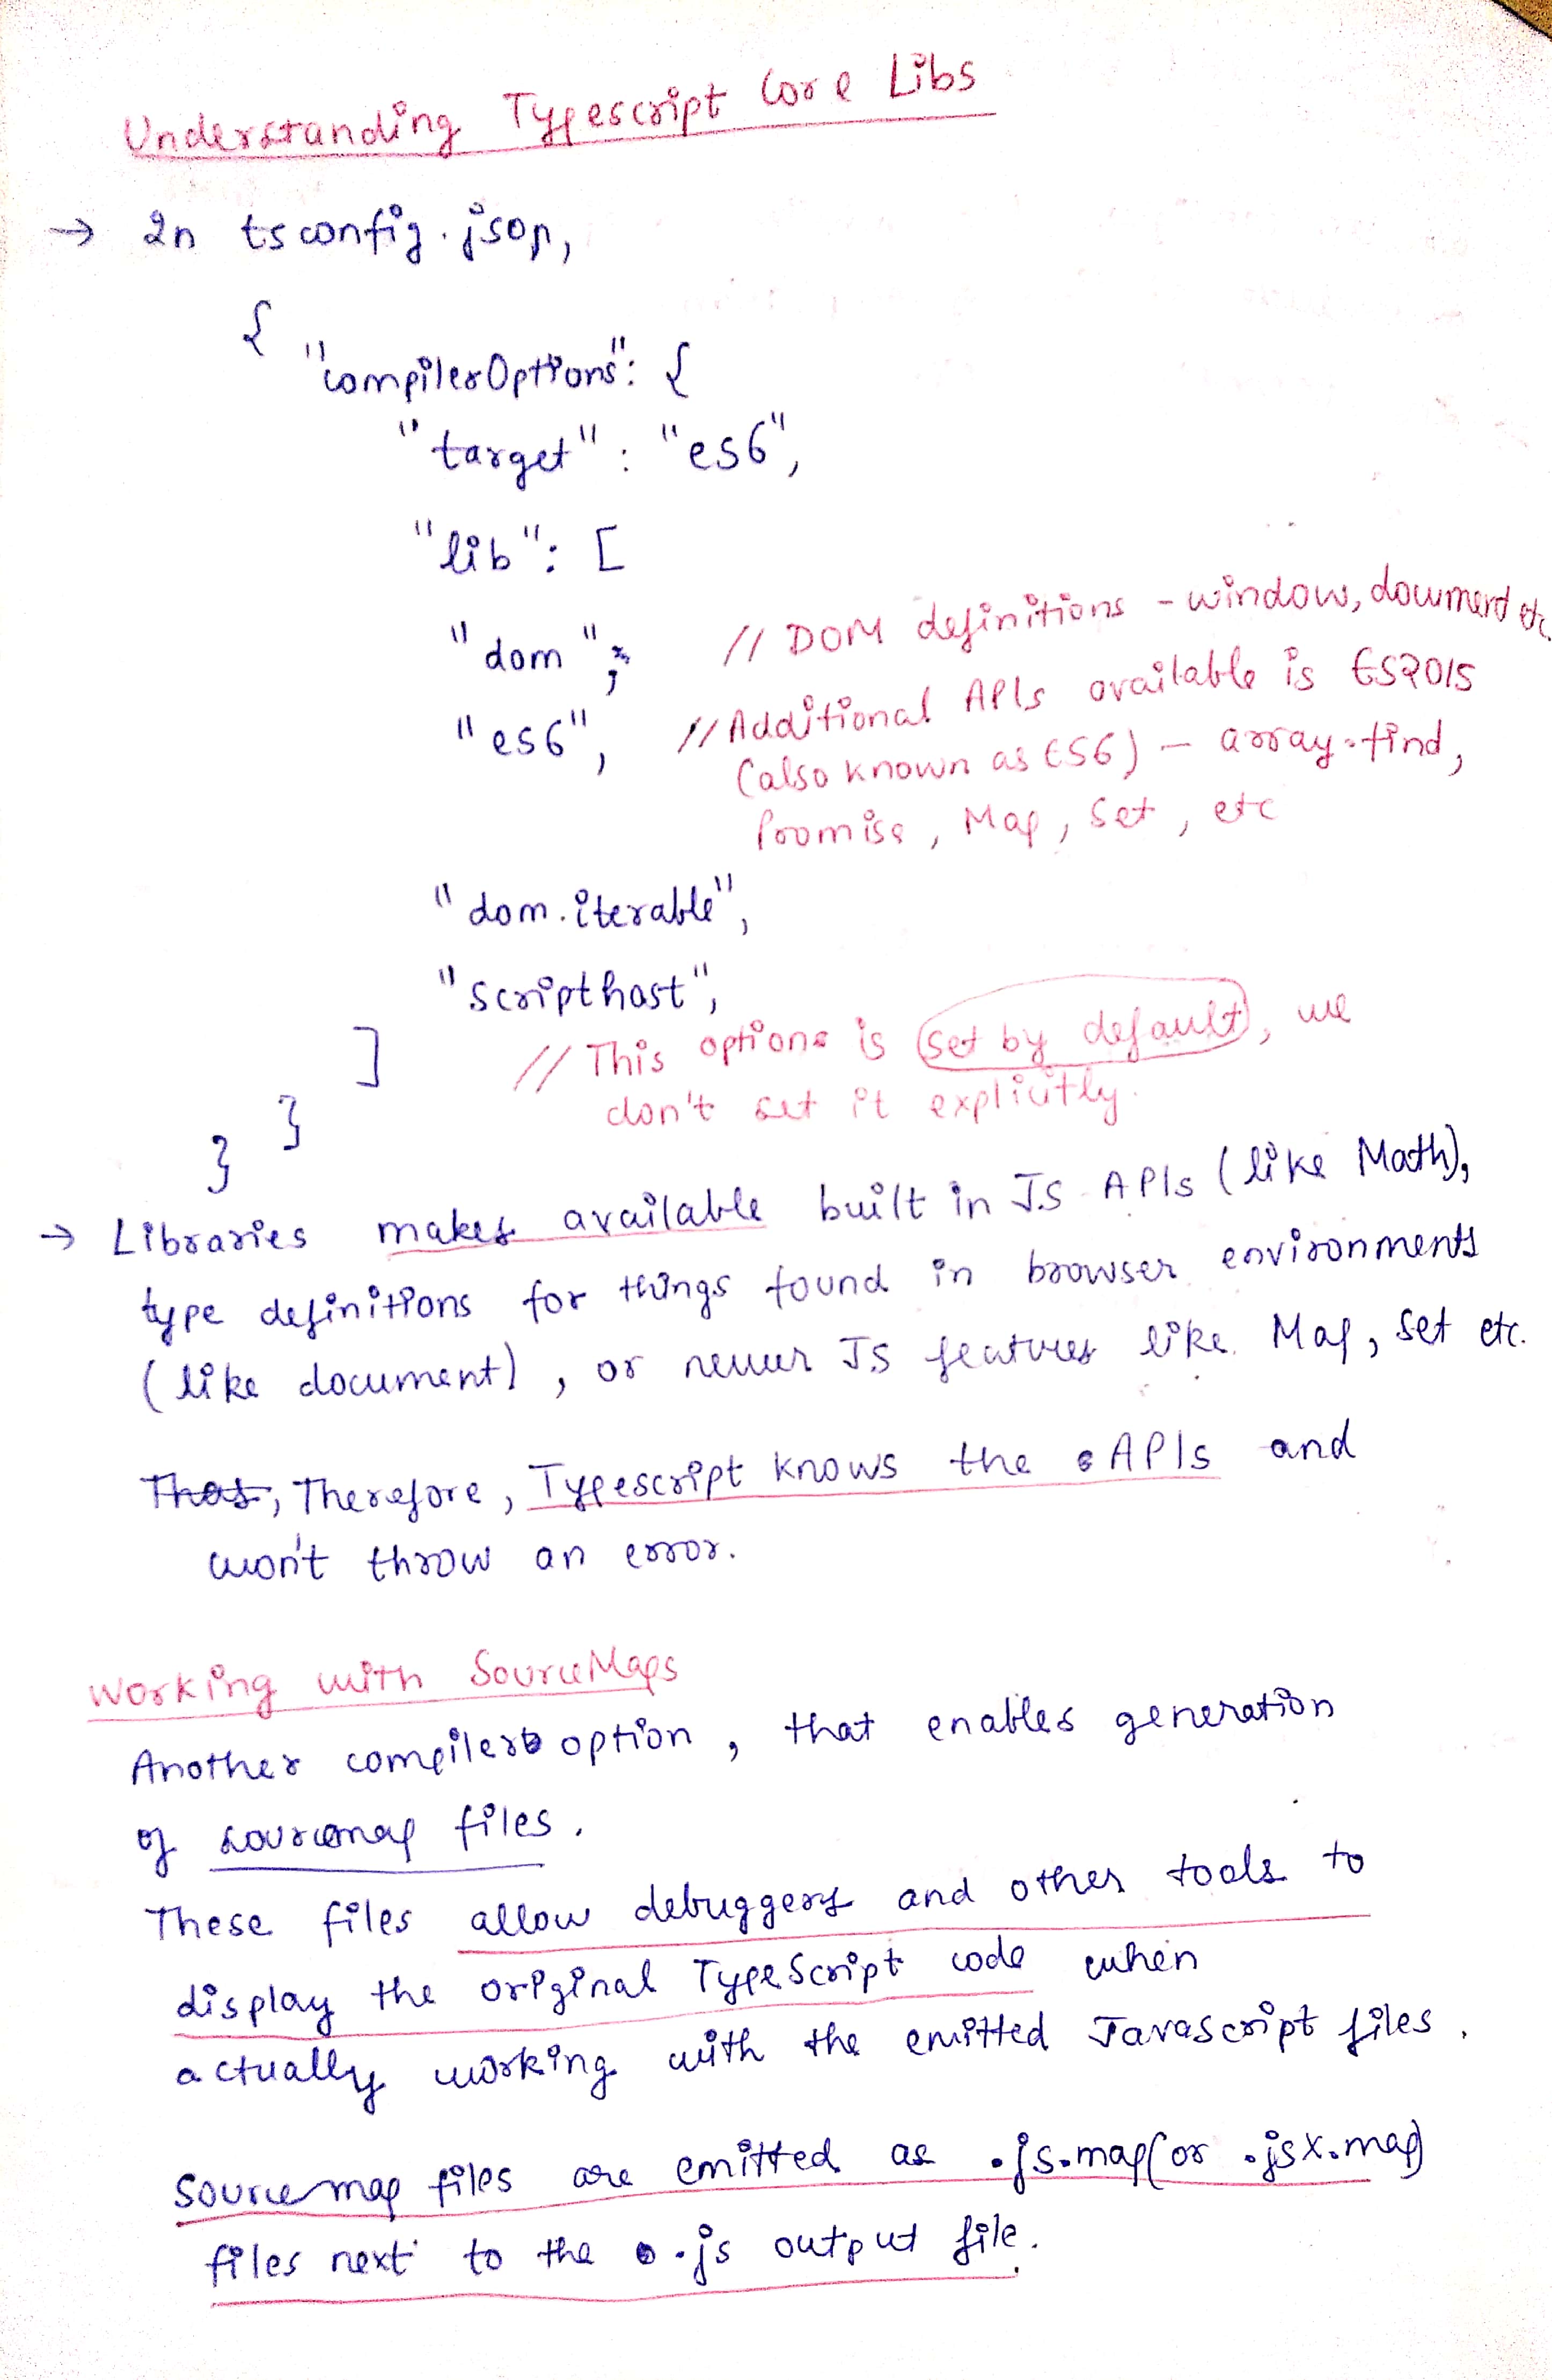 Understanding Typescript Core Libs
→ In tsconfig.json,
{
"compilerOptions": {
"target" : "es6",
"lib": [
"dom", // DOM definitions - window, document etc.
"es6", // Additional APIs available is ES2015
(also known as ES6) - array.find,
Promise, Map, Set, etc
"dom.iterable",
"scripthost",
] // This options is set by default, we
don't set it explicitly.
}
}
→ Libraries makes available built in JS APIs (like Math),
type definitions for things found in browser environments
(like document), or newer JS features like Map, Set etc.
That, Therefore, Typescript knows the APIs and
won't throw an error.
Working with SourceMaps
Another compiler option, that enables generation
of sourcemap files.
These files allow debuggers and other tools to
display the original TypeScript code when
actually working with the emitted Javascript files.
Source map files are emitted as .js.map (or .jsx.map)
files next to the .js output file.